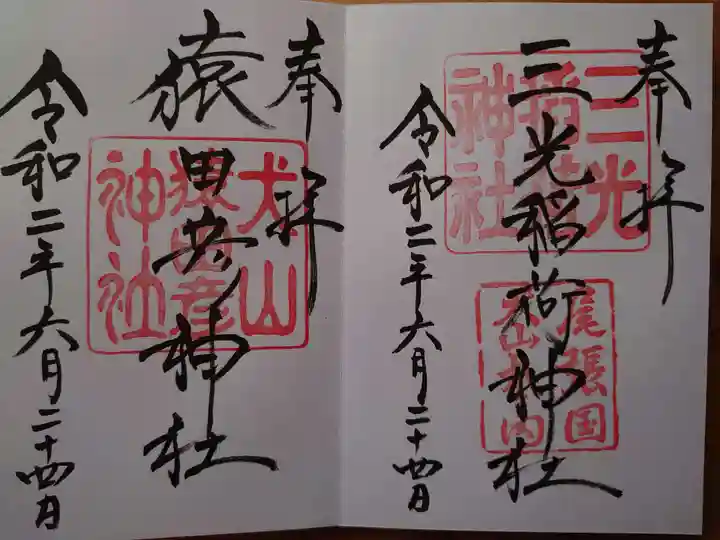 奉拝
三光稲荷神社
令和二年六月二十四日
三光
稲荷
神社
尾張国
犬山城内
奉拝
猿田彦神社
令和二年六月二十四日
犬山
猿田彦
神社